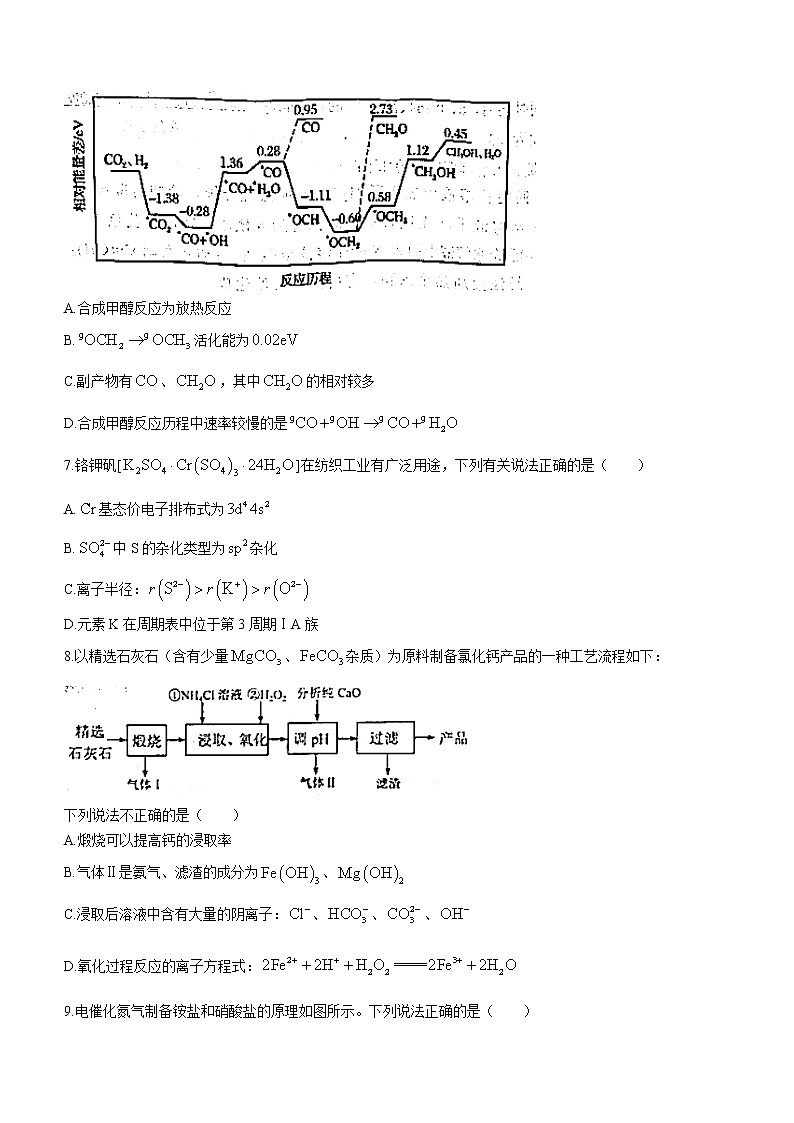 0.95
2.73
CO
CH₂O
0.45
CO₂、H₂
1.36
0.28
1.12
CH₃OH、H₂O
*CO
*CH₃OH
*CO+*H₂O
-1.38
-0.28
-1.11
0.58
-0.60
*CO₂
*OCH
*OCH₃
*CO+*OH
*OCH₂
相对能量差/eV
反应历程
A.合成甲醇反应为放热反应
B. ⁹OCH₂→⁹OCH₃活化能为0.02eV
C.副产物有CO、CH₂O，其中CH₂O的相对较多
D.合成甲醇反应历程中速率较慢的是⁹CO+⁹OH→⁹CO+⁹H₂O
7.铬钾矾[K₂SO₄·Cr(SO₄)₃·24H₂O]在纺织工业有广泛用途，下列有关说法正确的是（　　）
A. Cr基态价电子排布式为3d⁴4s²
B. SO₄²⁻中S的杂化类型为sp²杂化
C.离子半径：r(S²⁻)>r(K⁺)>r(O²⁻)
D.元素K在周期表中位于第3周期ⅠA族
8.以精选石灰石（含有少量MgCO₃、FeCO₃杂质）为原料制备氯化钙产品的一种工艺流程如下：
①NH₄Cl溶液 ②H₂O₂ 分析纯CaO
精选
石灰石
煅烧 浸取、氧化 调pH 过滤 产品
气体Ⅰ 气体Ⅱ 滤渣
下列说法不正确的是（　　）
A.煅烧可以提高钙的浸取率
B.气体Ⅱ是氨气、滤渣的成分为Fe(OH)₃、Mg(OH)₂
C.浸取后溶液中含有大量的阴离子：Cl⁻、HCO₃⁻、CO₃²⁻、OH⁻
D.氧化过程反应的离子方程式：2Fe²⁺+2H⁺+H₂O₂═══2Fe³⁺+2H₂O
9.电催化氮气制备铵盐和硝酸盐的原理如图所示。下列说法正确的是（　　）